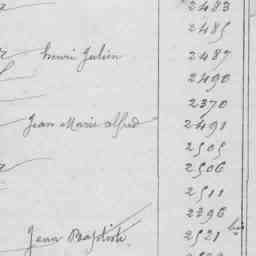 2483
2485
Henri Julien 2487
2490
2370
Jean Marie Alfred 2491
2505
2506
2511
2396
Jean Baptiste 2521 bis